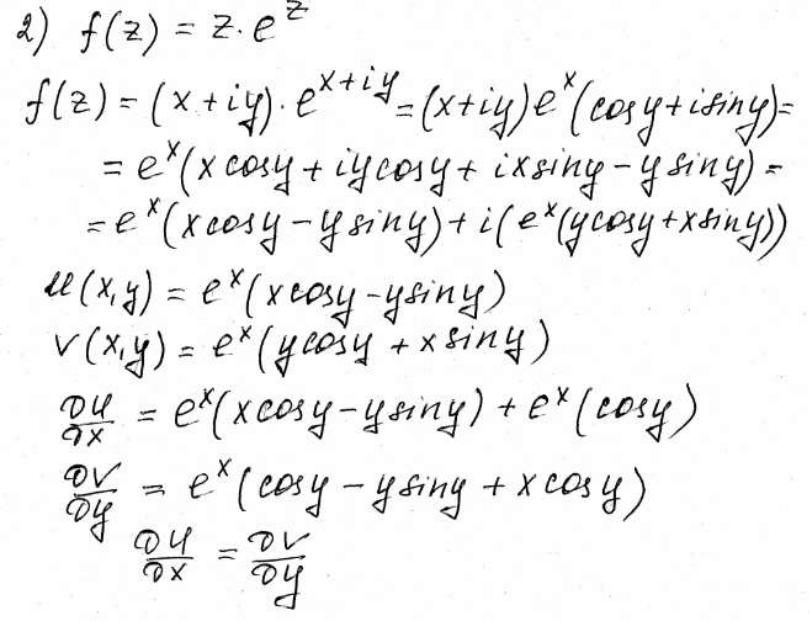 2) f(z) = z·e^z
f(z) = (x+iy)·e^{x+iy} = (x+iy)e^x(cosy+isiny)=
= e^x(xcosy + iycosy + ixsiny - ysiny) =
= e^x(xcosy - ysiny) + i(e^x(ycosy+xsiny))
u(x,y) = e^x(xcosy - ysiny)
v(x,y) = e^x(ycosy + xsiny)
∂u/∂x = e^x(xcosy - ysiny) + e^x(cosy)
∂v/∂y = e^x(cosy - ysiny + xcosy)
∂u/∂x = ∂v/∂y